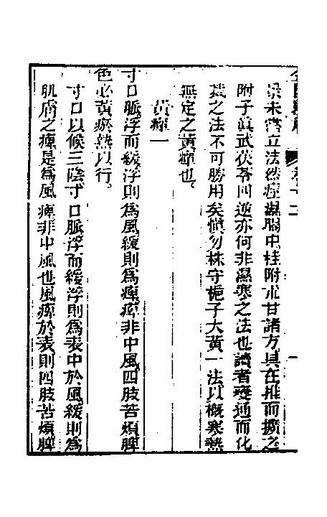 景未嘗立法然痙濕暍中桂附朮甘諸方具在推而擴之
附子真武茯苓四逆亦何非濕寒之法也讀者變通而化
裁之法不可勝用矣慎勿株守梔子大黃一法以概寒熱
無定之黃癉也。
黃癉一
寸口脈浮而緩浮則為風緩則為痺痺非中風四肢苦煩脾
色必黃瘀熱以行。
寸口以候三陰寸口脈浮而緩浮則為表中於風緩則為
肌膚之痺是為風痺非中風也風痺於表則四肢苦煩脾